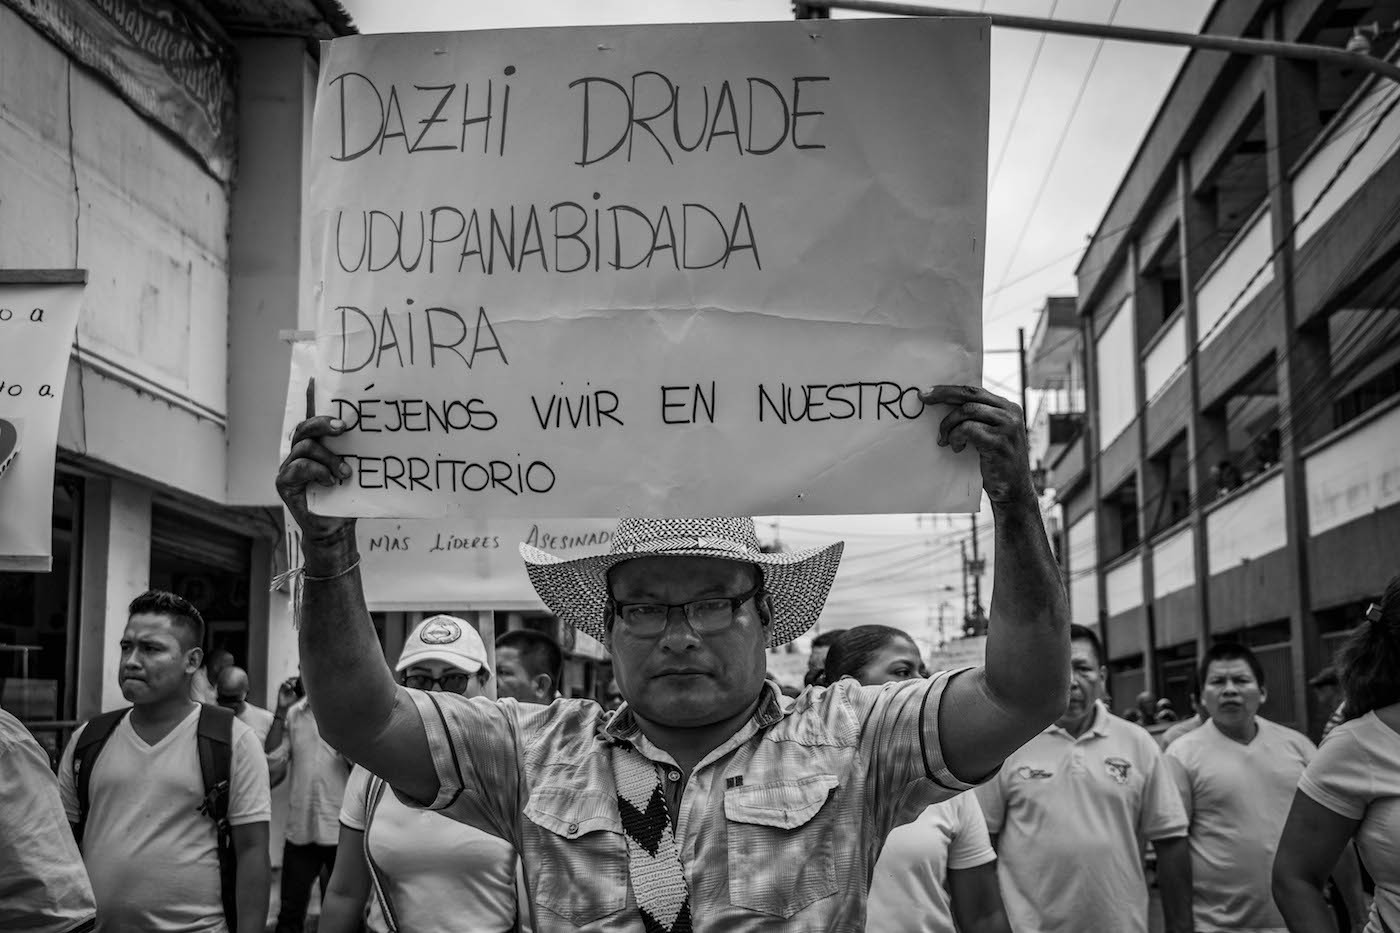 DAZHi DRUADE
UDUPANABiDADA
DAiRA
DÉJENOS ViViR EN NUESTRO
TERRiTORiO
MÁS LÍDERES ASESINAD
o a
to a,